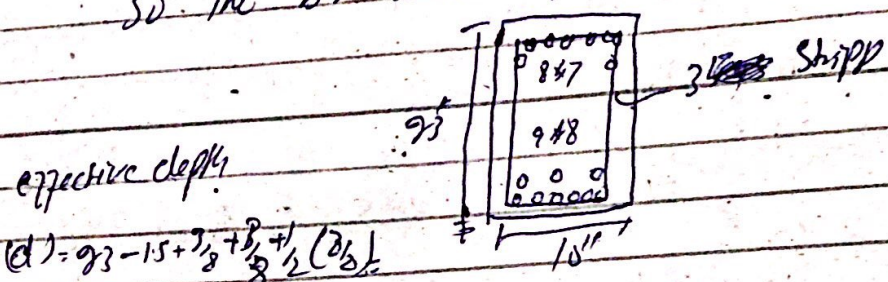 So the
8#7
9#8
23"
10"
effective depth
(d) = 23 - 1.5 + 3/8 + 8/8 + 1/2 (8/8)